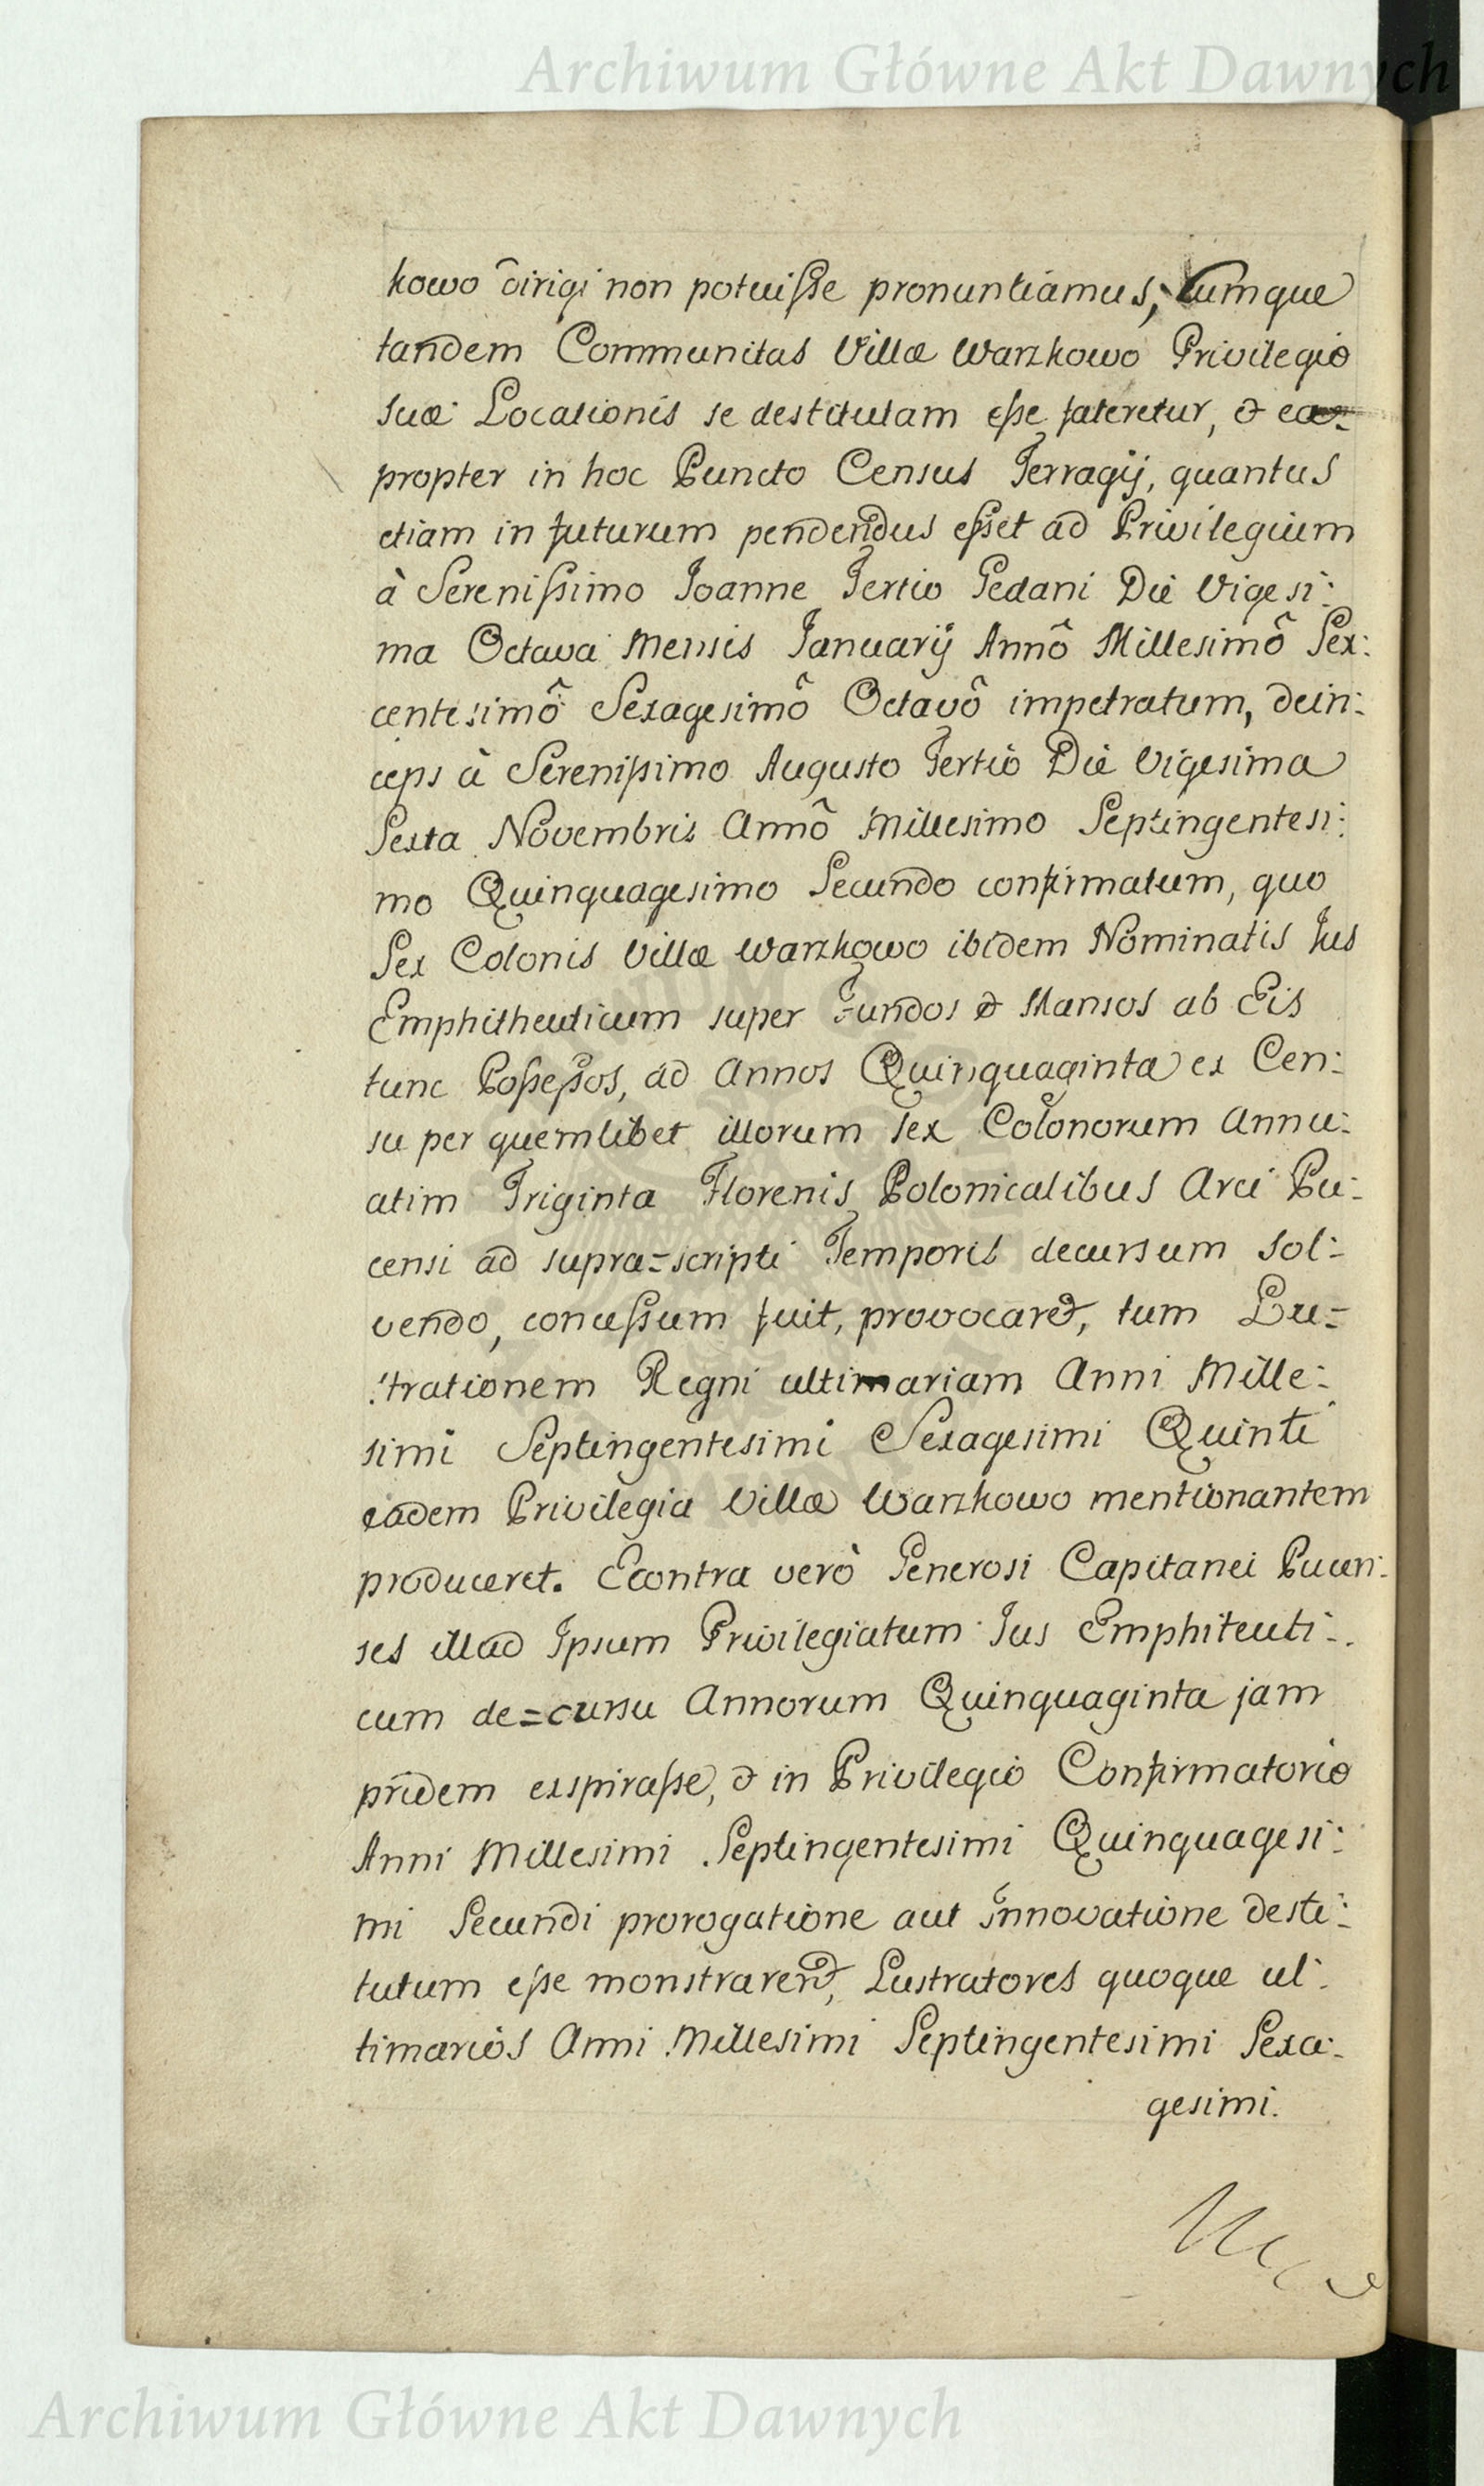 Archiwum Główne Akt Dawnych
kowo dirigi non potuisse pronuntiamus, Cumque
tandem Communitas Villæ Warzkowo Privilegio
suæ Locationis se destitutam esse fateretur, & ea-
propter in hoc Puncto Census Terragij, quantus
etiam in futurum pendendus esset ad Privilegium
à Serenissimo Joanne Tertio Gedani Die Vigesi:
ma Octava Mensis Januarij Annô Millesimô Sex:
centesimô Sexagesimô Octavô impetratum, dein:
ceps à Serenissimo Augusto Tertio Die Vigesima
Sexta Novembris Annô Millesimo Septingentesi:
mo Quinquagesimo Secundo confirmatum, quo
Sex Colonis Villæ Warzkowo ibidem Nominatis Jus
Emphitheuticum super Fundos & Mansos ab Eis
tunc Possessos, ad Annos Quinquaginta ex Cen:
su per quemlibet illorum sex Colonorum Annu:
atim Triginta Florenis Polonicalibus Arci Pu:
censi ad supra=scripti Temporis decursum sol:
vendo, concessum fuit, provocaret, tum Lu=
:trationem Regni ultimariam Anni Mille:
simi Septingentesimi Sexagesimi Quinti
eadem Privilegia Villæ Warzkowo mentionantem
produceret. Econtra verò Generosi Capitanei Pucen:
ses illud Ipsum Privilegiatum Jus Emphiteuti:
cum de=cursu Annorum Quinquaginta jam
pridem exspirasse, & in Privilegio Confirmatorio
Anni Millesimi Septingentesimi Quinquagesi:
mi Secundi prorogatione aut Innovatione desti:
tutum esse monstrarent, Lustratores quoque ul:
timarios Anni Millesimi Septingentesimi Sexa:
gesimi.
Archiwum Główne Akt Dawnych